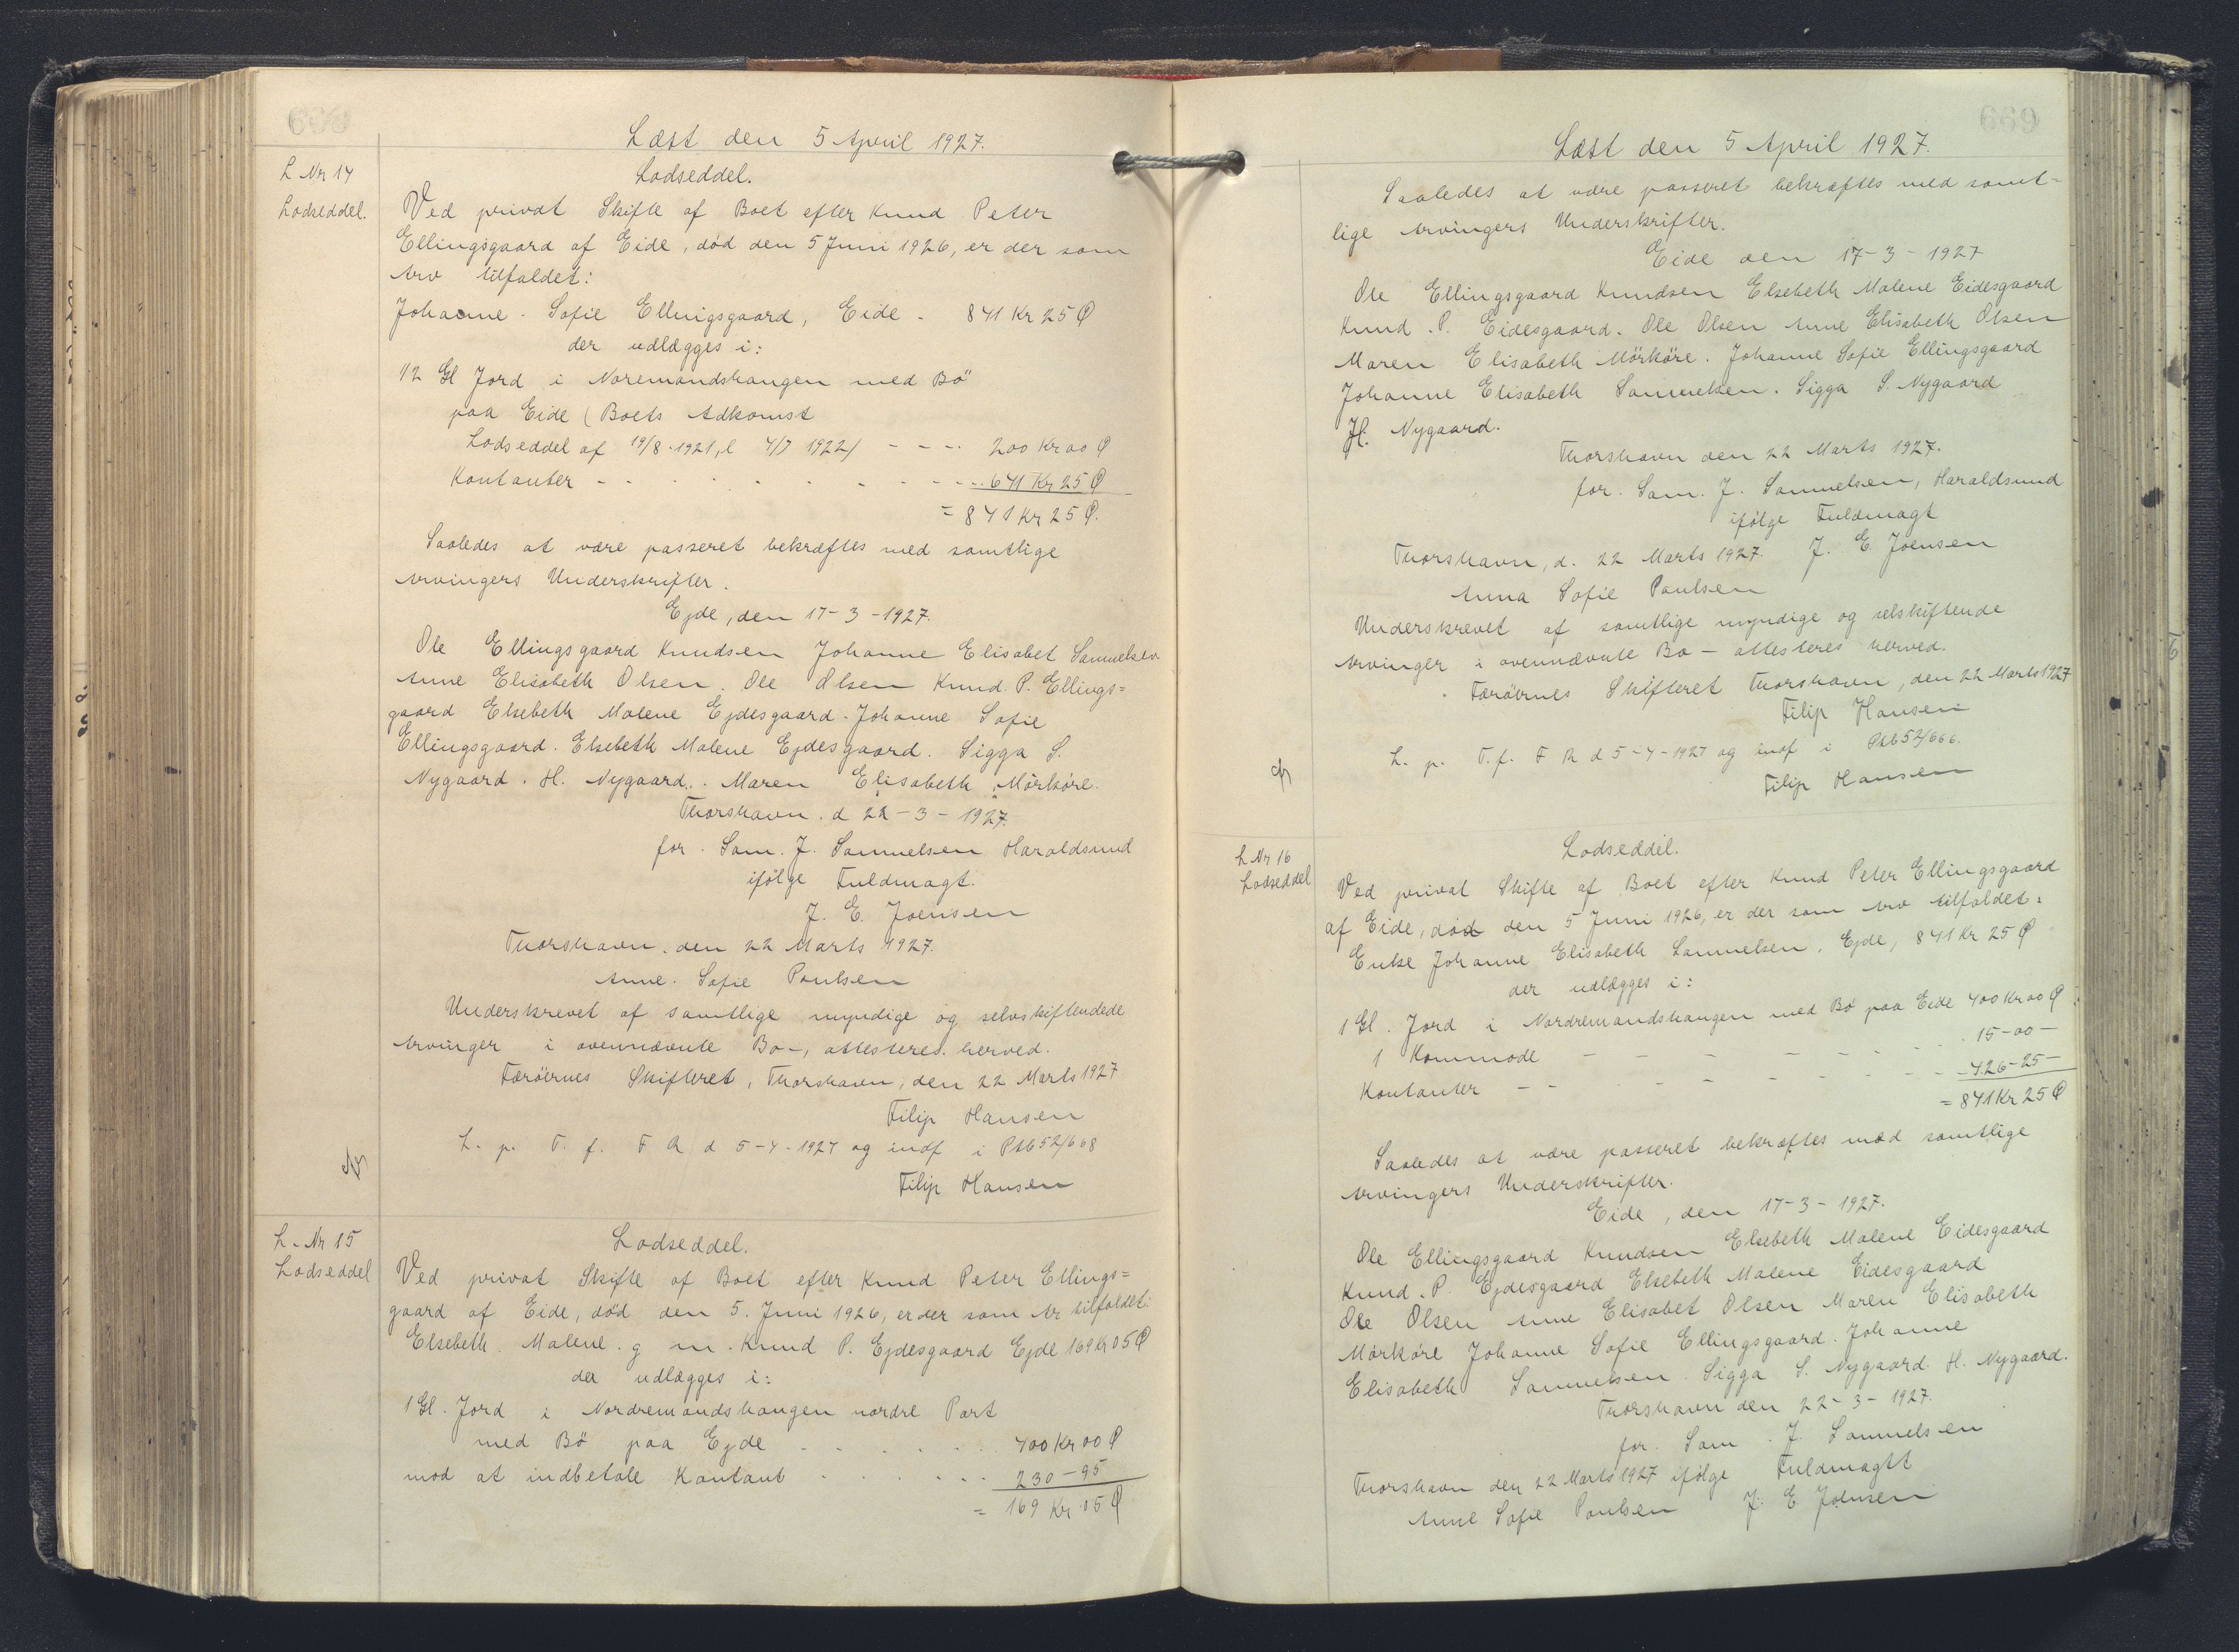 668
Læst den 5 April 1927.
L Nr 14
Lodseddel.
Lodseddel.
Ved privat Skifte af Boet efter Knud Peter
Ellingsgaard af Eide, død den 5 Juni 1926, er der som
Arv tilfaldet:
Johanne - Sofie Ellingsgaard, Eide - 841 Kr 25 Ø
der udlægges i:
12 Gl Jord i Noremandshaugen med Bö
paa Eide (Boets Adkomst
Lodseddel af 19/8-1921, l 4/7 1922) - - - - 200 Kr 00 Ø
Kontanter - - - - - - - - - 641 Kr 25 Ø
= 841 Kr 25 Ø.
Saaledes at være passeret bekræftes med samtlige
Arvingers Underskrifter.
Ejde, den 17-3-1927.
Ole Ellingsgaard Knudsen Johanne Elisabet Samuelsen
Anne Elisabeth Olsen. Ole Olsen Knud. P. Ellings=
gaard Elsebeth Malene Ejdesgaard. Johanne Sofie
Ellingsgaard. Elsebeth Malene Ejdesgaard. Sigga S.
Nygaard. H. Nygaard.. Maren Elisabeth Mörköre.
Thorshavn. d 22-3-1927.
for. Sam. J. Samuelsen Haraldsund
ifölge Fuldmagt.
J. E. Joensen
Thorshavn. den 22 Marts 1927.
Anne. Sofie Poulsen
Underskrevet af samtlige myndige og selvskiftendede
Arvinger i ovennævnte Bo-, attesteres. herved.
Færöernes Skifteret, Thorshavn, den 22 Marts 1927
Filip Hansen
L. p. T. f. F R d 5-4-1927 og indf i Ptb 52/668
Filip Hansen
L. Nr 15
Lodseddel
Lodseddel.
Ved privat Skifte af Boet efter Knud Peter Ellings=
gaard af Eide, død den 5. Juni 1926, er der som Ar tilfaldet:
Elsebeth. Malene. g m. Knud P. Ejdesgaard Ejde 169 Kr 05 Ø
der udlægges i:
1 Gl. Jord i Nordremandshaugen nordre Part
med Bö paa Ejde - - - - - 400 Kr 00 Ø
mod at indbetale Kontant - - - - - 230-95
= 169 Kr. 05 Ø
669
Læst den 5 April 1927.
Saaledes at være passeret bekræftes med samt-
lige Arvingers Underskrifter.
Eide den 17-3-1927
Ole Ellingsgaard Knudsen Elsebeth Malene Eidesgaard
Knud. P. Eidesgaard. Ole Olsen Anne Elisabeth Olsen
Maren Elisabeth Mörköre. Johanne Sofie Ellingsgaard
Johanne Elisabeth Samuelsen. Sigga S. Nygaard
H. Nygaard.
Thorshavn den 22 Marts 1927.
for. Sam. J. Samuelsen, Haraldsund
ifölge Fuldmagt
Thorshavn, d. 22 Marts 1927. J. E. Joensen
Anna Sofie Poulsen
Underskrevet af samtlige myndige og selskiftende
Arvinger i ovennævnte Bo - attesteres herved.
Færöernes Skifteret Thorshavn, den 22 Marts 1927
Filip Hansen
L. p. T. f. F R d 5-4-1927 og indf i Ptb 52/666.
Filip Hansen
L Nr 16
Lodseddel
Lodseddel.
Ved privat Skifte af Boet efter Knud Peter Ellingsgaard
af Eide, död den 5 Juni 1926, er der som Arv tilfaldet:
Enke Johanne Elisabeth Samuelsen, Ejde, 841 Kr 25 Ø
der udlægges i:
1 Gl. Jord i Nordremandshaugen med Bö paa Eide 400 Kr 00 Ø
1 Kommode - - - - - - - 15-00-
Kontanter - - - - - - - - 426-25-
= 841 Kr 25 Ø
Saaledes at være passeret bekræftes med samtlige
Arvingers Underskrifter.
Eide, den 17-3-1927.
Ole Ellingsgaard Knudsen Elsebeth Malene Eidesgaard
Knud. P. Ejdesgaard Elsebeth Malene Eidesgaard
Ole Olsen Anne Elisabet Olsen Maren Elisabeth
Mörköre Johanne Sofie Ellingsgaard. Johanne
Elisabeth Samuelsen. Sigga S. Nygaard. H. Nygaard.
Thorshavn den 22-3-1927.
for. Sam. J. Samuelsen
Thorshavn den 22 Marts 1927 ifölge Fuldmagtt
Anne Sofie Poulsen J. E Joensen